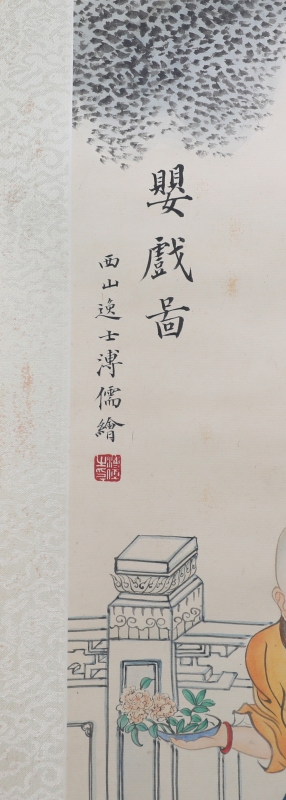 嬰戲啚
西山逸士溥儒繪